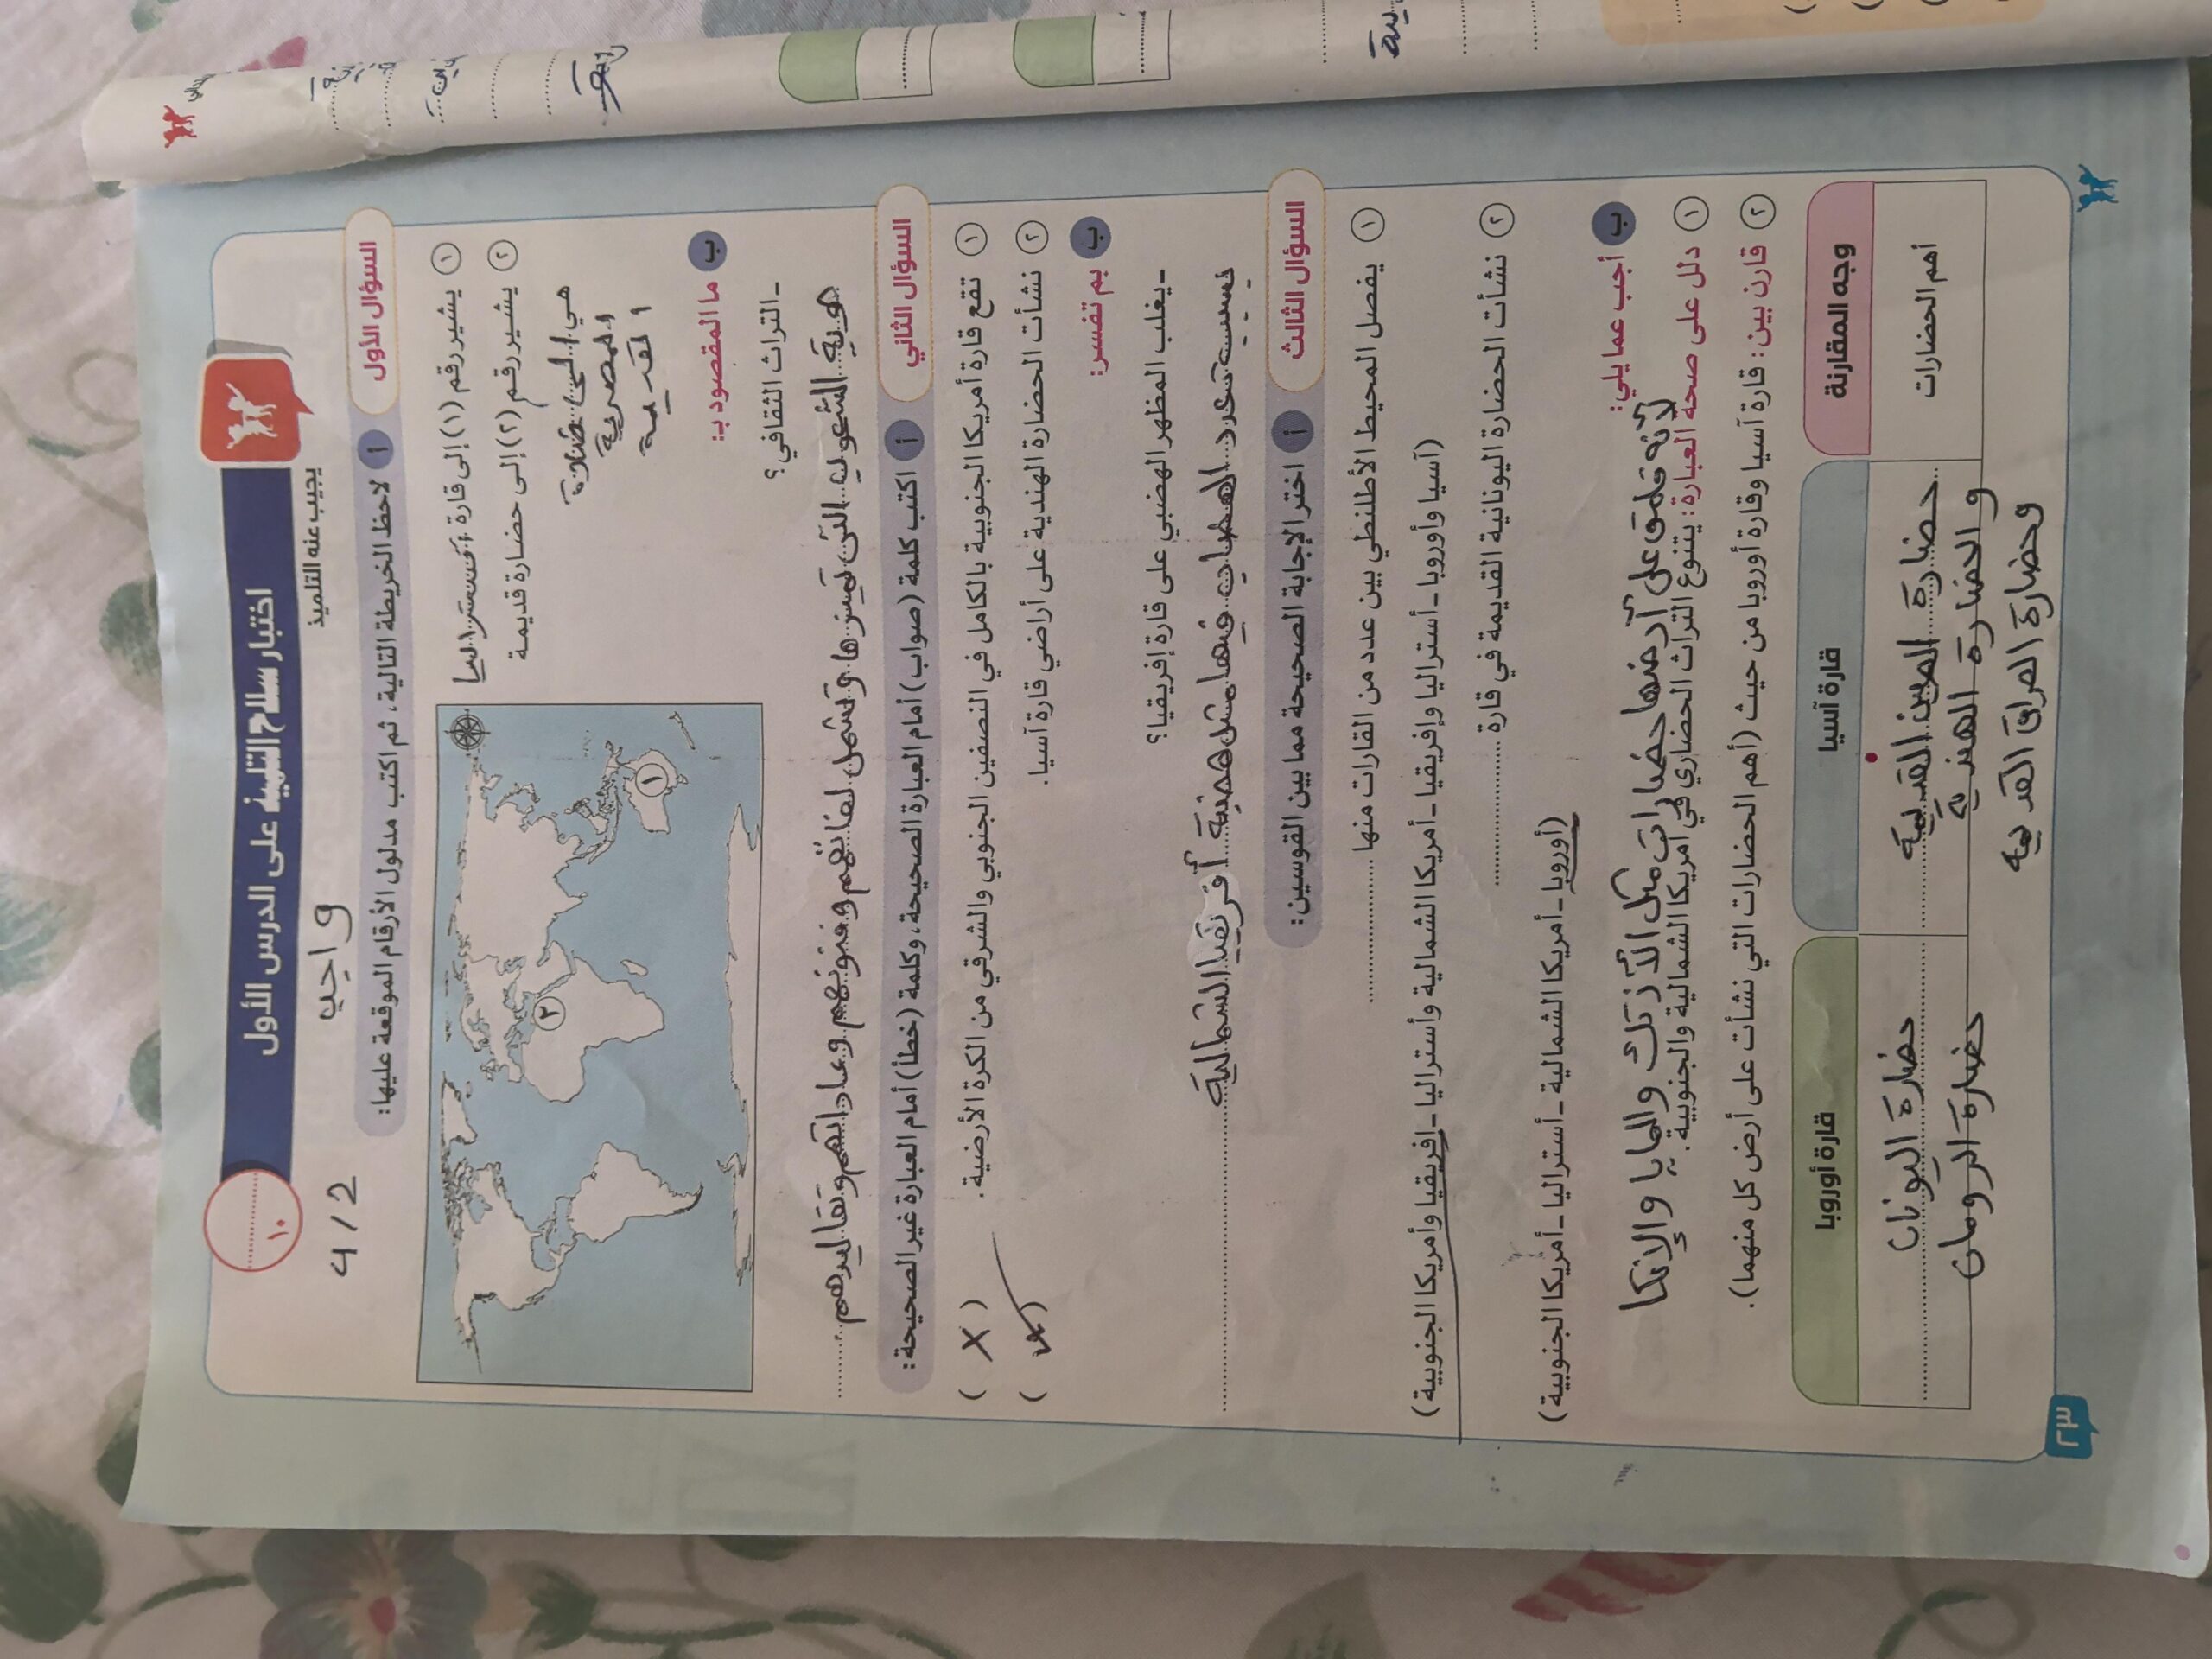 اختبار سلاح التلميذ على الدرس الأول
١٠
يجيب عنه التلميذ
واجب
4/2
السؤال الأول
أ لاحظ الخريطة التالية، ثم اكتب مدلول الأرقام الموقعة عليها:
١ يشير رقم (١) إلى قارة أستراليا
٢ يشير رقم (٢) إلى حضارة قديمة
هي الحضارة
المصرية
القديمة
١
٢
ب ما المقصود بـ:
- التراث الثقافي؟
هوية الشعوب التى تميزها وتشمل لغاتهم وفنونهم وعاداتهم وتقاليدهم
السؤال الثاني
أ اكتب كلمة (صواب) أمام العبارة الصحيحة، وكلمة (خطأ) أمام العبارة غير الصحيحة:
١ تقع قارة أمريكا الجنوبية بالكامل في النصفين الجنوبي والشرقي من الكرة الأرضية. ( X )
٢ نشأت الحضارة الهندية على أراضي قارة آسيا. ( )
ب بم تفسر:
- يغلب المظهر الهضبي على قارة إفريقيا؟
بسبب تعدد الهضاب فيها مثل هضبة أفريقيا الشمالية
السؤال الثالث
أ اختر الإجابة الصحيحة مما بين القوسين:
١ يفصل المحيط الأطلنطي بين عدد من القارات منها ..........
(آسيا وأوروبا - أستراليا وإفريقيا - أمريكا الشمالية وأستراليا - إفريقيا وأمريكا الجنوبية)
٢ نشأت الحضارة اليونانية القديمة في قارة ..........
(أوروبا - أمريكا الشمالية - أستراليا - أمريكا الجنوبية)
ب أجب عما يلي:
لأنه قامت على أرضها حضارات مثل الأزتك والمايا والإنكا
١ دلل على صحة العبارة: يتنوع التراث الحضاري في أمريكا الشمالية والجنوبية.
٢ قارن بين: قارة آسيا وقارة أوروبا من حيث (أهم الحضارات التي نشأت على أرض كل منهما).
وجه المقارنة قارة آسيا قارة أوروبا
أهم الحضارات
حضارة الصين القديمة حضارة اليونان
والحضارة الهندية حضارة الرومان
وحضارة العراق القديمه
٢٣